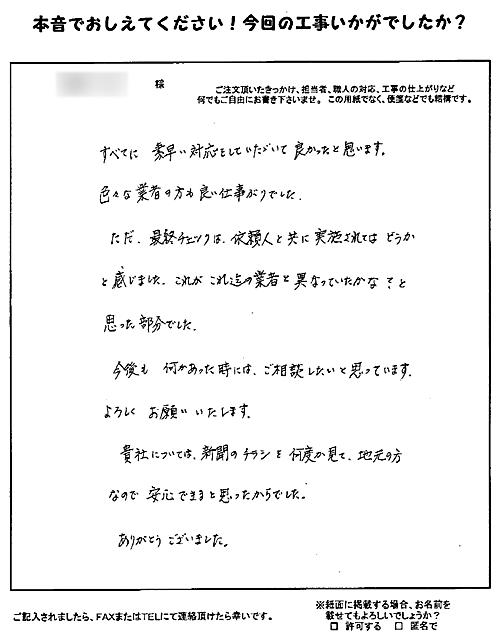 本音でおしえてください！今回の工事いかがでしたか？
様
ご注文頂いたきっかけ、担当者、職人の対応、工事の仕上がりなど
何でもご自由にお書き下さいませ。この用紙でなく、便箋などでも結構です。
すべてに 素早い対応をしていただいて良かったと思います。
色々な業者の方も良い仕事がりでした。
ただ、最終チェックは、依頼人と共に実施されてはどうか
と感じました。これがこれ迄の業者と異なっていたかな？と
思った部分でした。
今後も 何かあった時には、ご相談したいと思っています。
よろしく お願いいたします。
貴社については、新聞のチラシを何度か見て、地元の方
なので 安心できると思ったからでした。
ありがとうございました。
ご記入されましたら、FAXまたはTELにて連絡頂けたら幸いです。
※紙面に掲載する場合、お名前を
載せてもよろしいでしょうか？
□ 許可する □ 匿名で